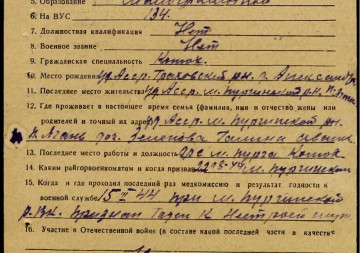 5. Образование Малограмотный
6. На ВУС 134
7. Должностная квалификация Нет
8. Военное звание Нет
9. Гражданская специальность Конюх
10. Место рождения Уд Асср. Граховский рн. д.
11. Последнее место жительства Уд Асср. м. Пургинский р-н.
12. Где проживает в настоящее время семья (фамилия, имя и отчество жены или
родителей и точный их адрес) Уд Асср. м. Пургинский рн
13. Последнее место работы и должность м. Пурга Конюх
14. Каким райгорвоенкоматом и когда призван 44 м. Пургинский
15. Когда и где проходил последний раз медкомиссию и результат годности к
военной службе 15 II 44 при м. Пургинской
р. Признан Годен к Нестроевой
16. Участие в Отечественной войне (в составе какой последней части в качестве